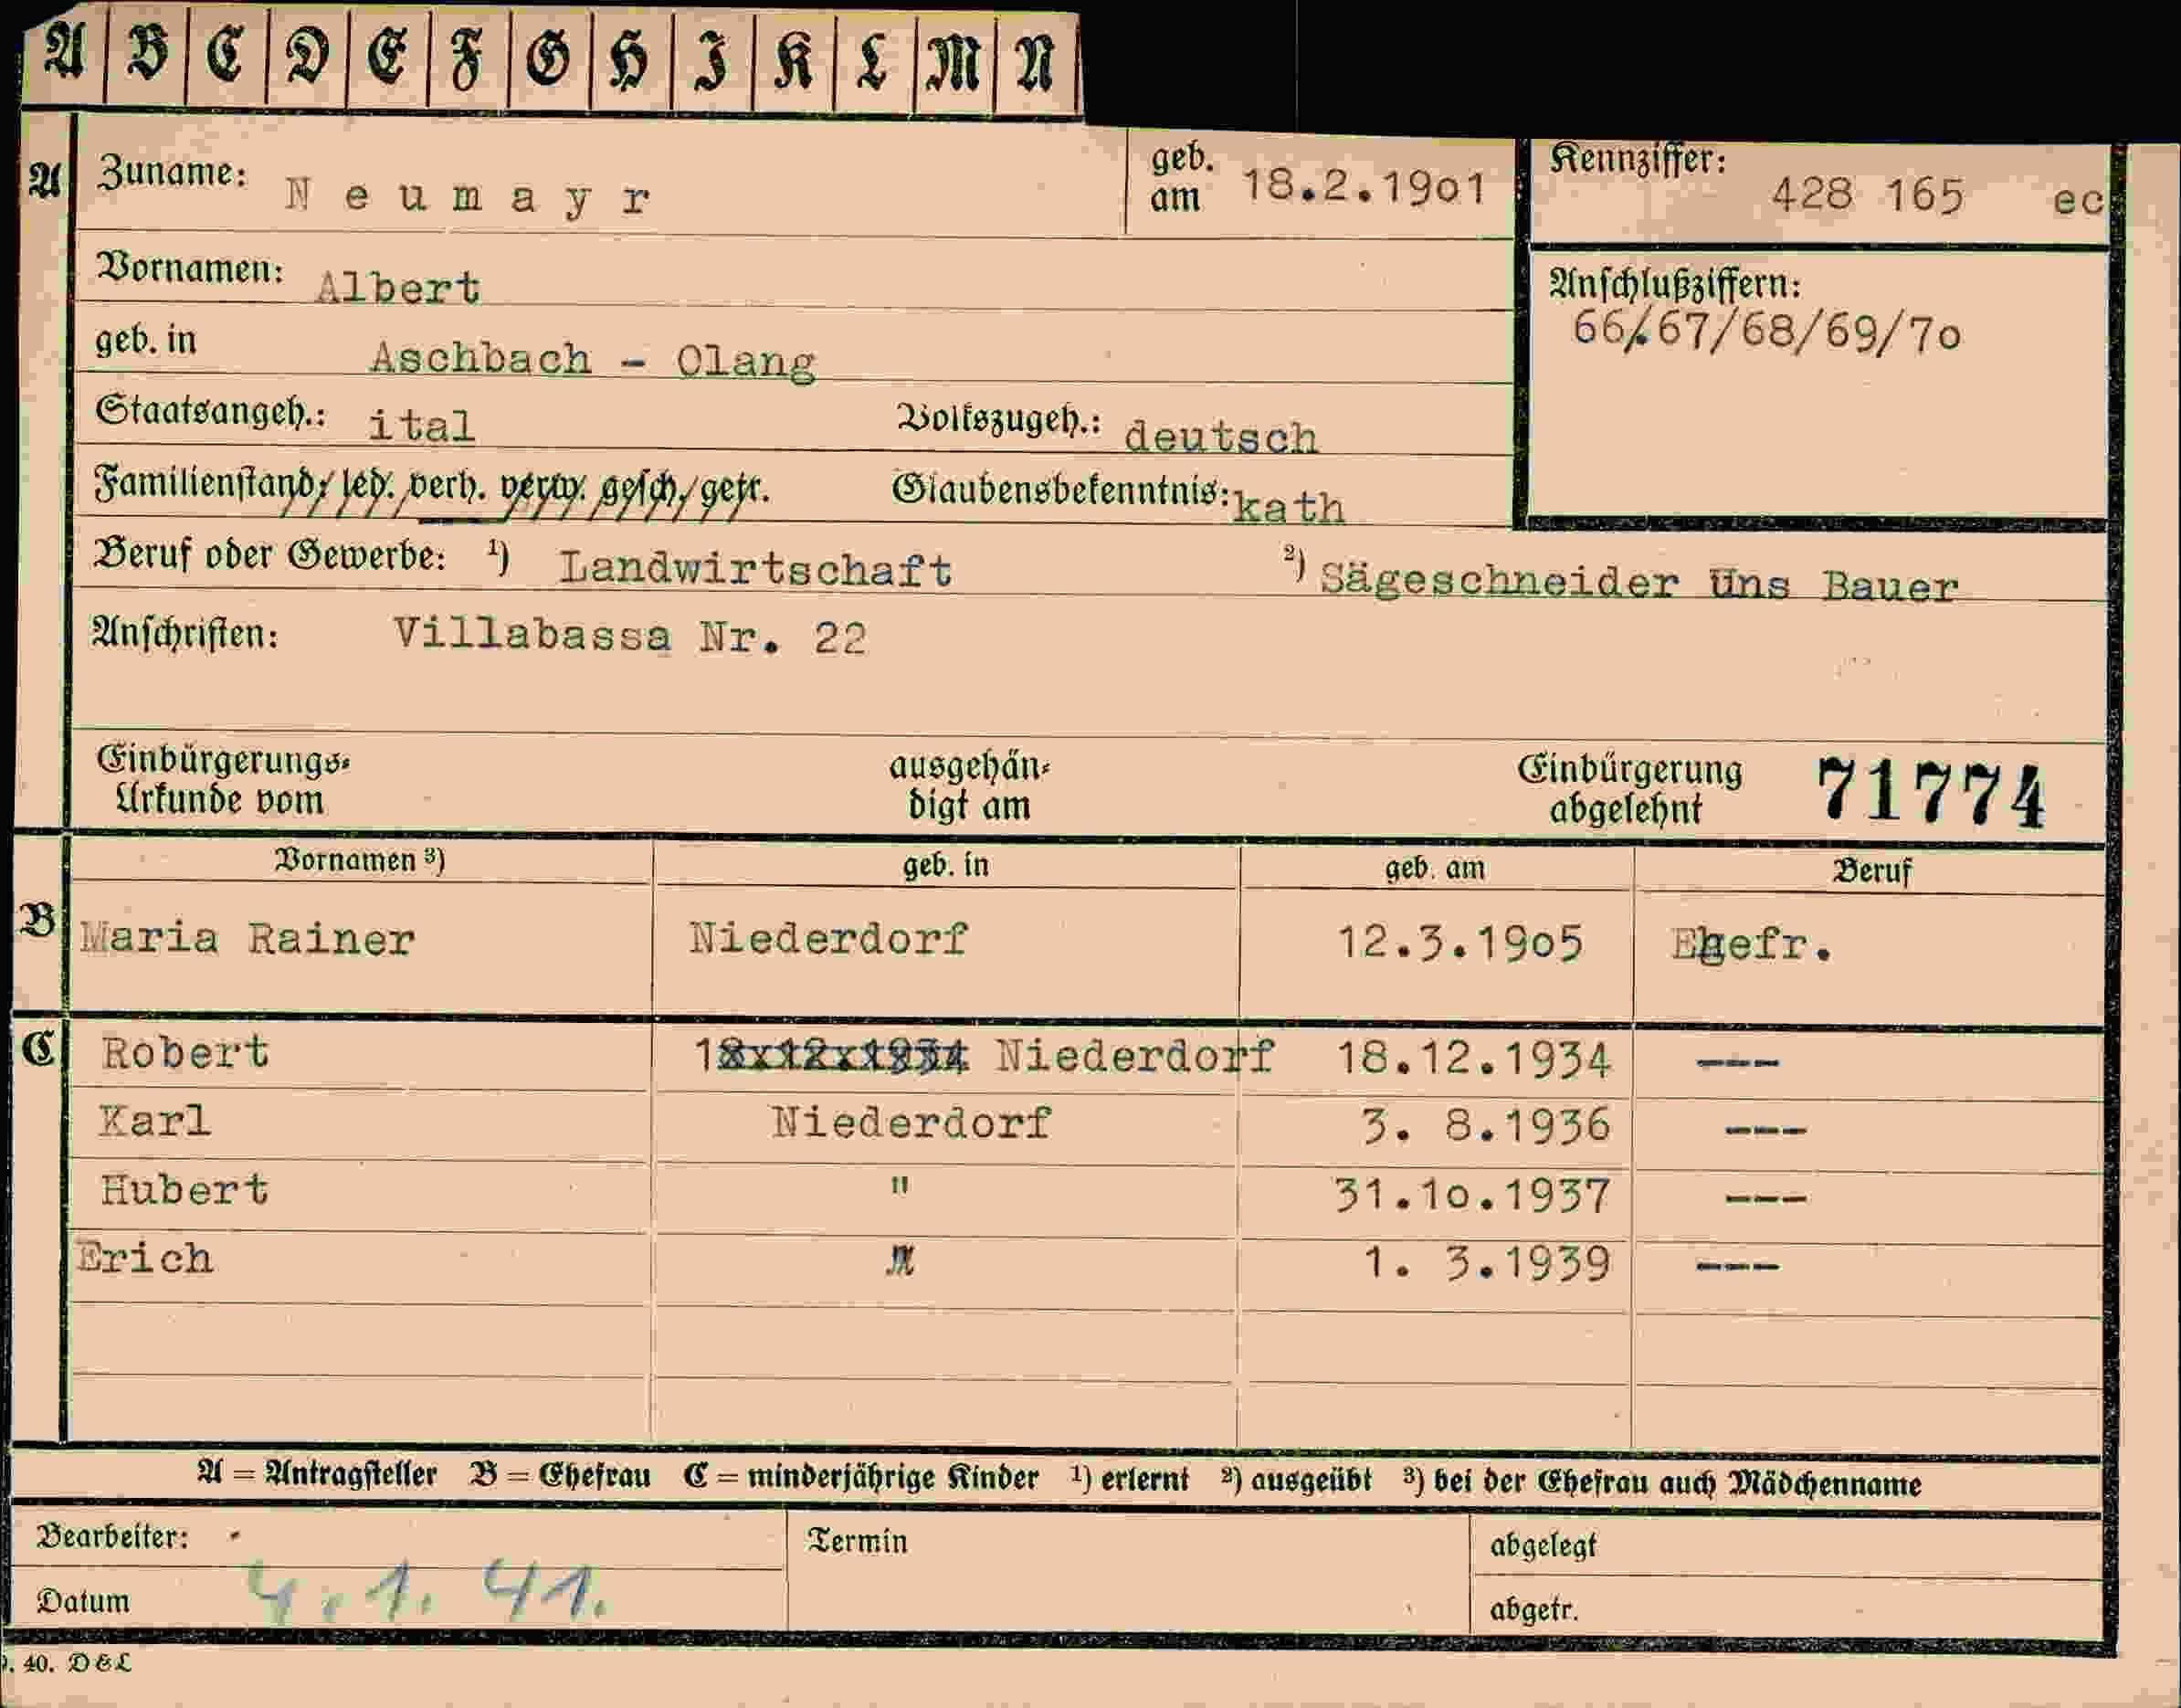 A B C D E F G H I K L M N
A Zuname: Neumayr geb. am 18.2.1901 Kennziffer: 428 165 ec
Vornamen: Albert Anschlußziffern:
66/.67/68/69/7o
geb. in Aschbach - Olang
Staatsangeh.: ital Volkszugeh.: deutsch
Familienstand: led. verh. verw. gesch. getr. Glaubensbekenntnis: kath
Beruf oder Gewerbe: 1) Landwirtschaft 2) Sägeschneider Uns Bauer
Anschriften: Villabassa Nr. 22
Einbürgerungs-Urkunde vom ausgehän-digt am Einbürgerung abgelehnt 71774
Vornamen 3) geb. in geb. am Beruf
B Maria Rainer Niederdorf 12.3.19o5 Ehefr.
C Robert 18x12x1934 Niederdorf 18.12.1934 ---
Karl Niederdorf 3. 8.1936 ---
Hubert " 31.1o.1937 ---
Erich " 1. 3.1939 ---
A = Antragsteller B = Ehefrau C = minderjährige Kinder 1) erlernt 2) ausgeübt 3) bei der Ehefrau auch Mädchenname
Bearbeiter: Termin abgelegt
Datum 4.1.41. abgetr.
. 40. D & L